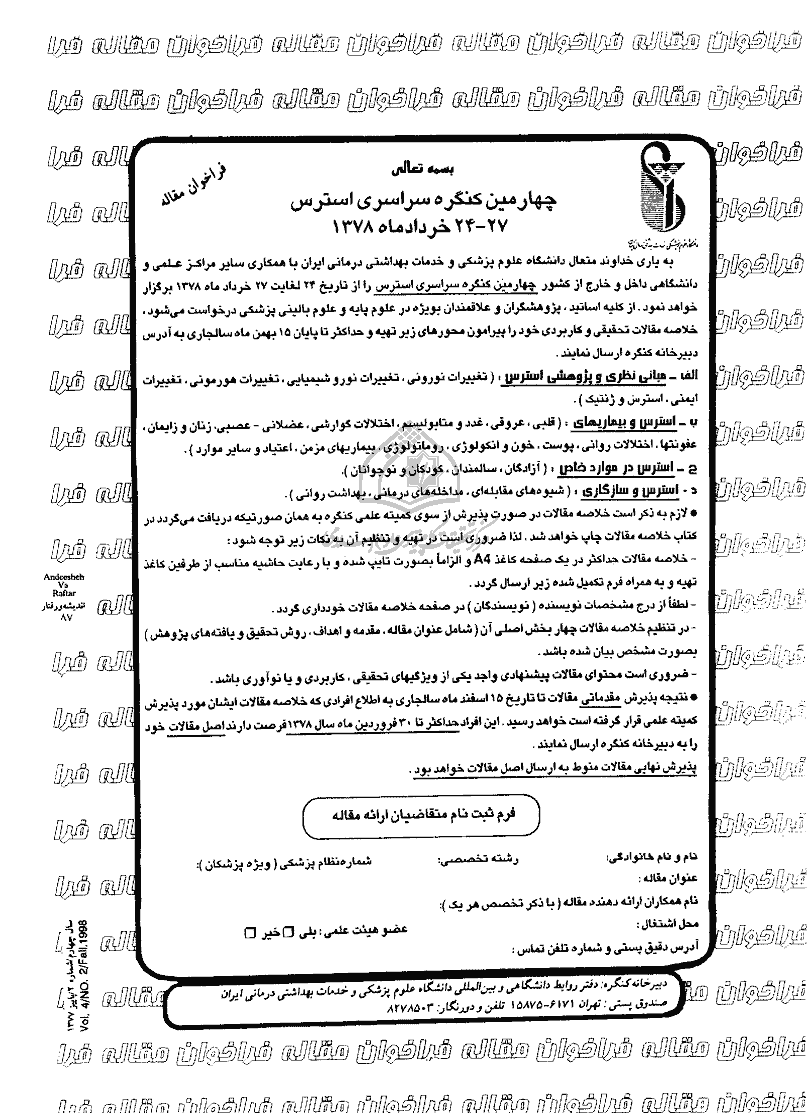 فراخوان مقاله فراخوان مقاله فراخوان مقاله فراخوان مقاله فرا
فراخوان مقاله فراخوان مقاله فراخوان مقاله فراخوان مقاله فرا
فراخوان مقاله
بسمه تعالی
چهارمین کنگره سراسری استرس
۲۷-۲۴ خردادماه ۱۳۷۸
به یاری خداوند متعال دانشگاه علوم پزشکی و خدمات بهداشتی درمانی ایران با همکاری سایر مراکز علمی و
دانشگاهی داخل و خارج از کشور چهارمین کنگره سراسری استرس را از تاریخ ۲۴ لغایت ۲۷ خرداد ماه ۱۳۷۸ برگزار
خواهد نمود . از کلیه اساتید ، پژوهشگران و علاقمندان بویژه در علوم پایه و علوم بالینی پزشکی درخواست می‌شود ،
خلاصه مقالات تحقیقی و کاربردی خود را پیرامون محورهای زیر تهیه و حداکثر تا پایان ۱۵ بهمن ماه سالجاری به آدرس
دبیرخانه کنگره ارسال نمایند .
الف – مبانی نظری و پژوهشی استرس : ( تغییرات نورونی ، تغییرات نورو شیمیایی ، تغییرات هورمونی ، تغییرات
ایمنی ، استرس و ژنتیک ) .
ب – استرس و بیماریهای : ( قلبی ، عروقی ، غدد و متابولیسم ، اختلالات گوارشی ، عضلانی - عصبی، زنان و زایمان ،
عفونتها، اختلالات روانی ، پوست ، خون و انکولوژی ، روماتولوژی ، بیماریهای مزمن ، اعتیاد و سایر موارد ) .
ج – استرس در موارد خاص : ( آزادگان ، سالمندان ، کودکان و نوجوانان ).
د - استرس و سازگاری : ( شیوه‌های مقابله‌ای، مداخله‌های درمانی ، بهداشت روانی ) .
● لازم به ذکر است خلاصه مقالات در صورت پذیرش از سوی کمیته علمی کنگره به همان صورتیکه دریافت می‌گردد در
کتاب خلاصه مقالات چاپ خواهد شد . لذا ضروری است در تهیه و تنظیم آن به نکات زیر توجه شود :
- خلاصه مقالات حداکثر در یک صفحه کاغذ A4 و الزاماً بصورت تایپ شده و با رعایت حاشیه مناسب از طرفین کاغذ
تهیه و به همراه فرم تکمیل شده زیر ارسال گردد .
- لطفاً از درج مشخصات نویسنده ( نویسندگان ) در صفحه خلاصه مقالات خودداری گردد .
- در تنظیم خلاصه مقالات چهار بخش اصلی آن ( شامل عنوان مقاله ، مقدمه و اهداف ، روش تحقیق و یافته‌های پژوهش )
بصورت مشخص بیان شده باشد .
- ضروری است محتوای مقالات پیشنهادی واجد یکی از ویژگیهای تحقیقی ، کاربردی و یا نوآوری باشد .
● نتیجه پذیرش مقدماتی مقالات تا تاریخ ۱۵ اسفند ماه سالجاری به اطلاع افرادی که خلاصه مقالات ایشان مورد پذیرش
کمیته علمی قرار گرفته است خواهد رسید . این افراد حداکثر تا ۳۰ فروردین ماه سال ۱۳۷۸ فرصت دارند اصل مقالات خود
را به دبیرخانه کنگره ارسال نمایند .
پذیرش نهایی مقالات منوط به ارسال اصل مقالات خواهد بود .
فرم ثبت نام متقاضیان ارائه مقاله
نام و نام خانوادگی: رشته تخصصی: شماره نظام پزشکی ( ویژه پزشکان ):
عنوان مقاله :
نام همکاران ارائه دهنده مقاله ( با ذکر تخصص هر یک ):
محل اشتغال : عضو هیئت علمی : بلی □ خیر □
آدرس دقیق پستی و شماره تلفن تماس :
دبیرخانه کنگره: دفتر روابط دانشگاهی و بین‌المللی دانشگاه علوم پزشکی و خدمات بهداشتی درمانی ایران
صندوق پستی : تهران ۶۱۷۱-۱۵۸۷۵ تلفن و دورنگار: ۸۲۷۸۵۰۳
Andeesheh
Va
Raftar
اندیشه و رفتار
۸۷
سال چهارم/شماره ۲/پاییز ۱۳۷۷
Vol. 4/NO. 2/Fall.1998
فراخوان مقاله فراخوان مقاله فراخوان مقاله فراخوان مقاله فرا
فراخوان مقاله فراخوان مقاله فراخوان مقاله فراخوان مقاله فرا